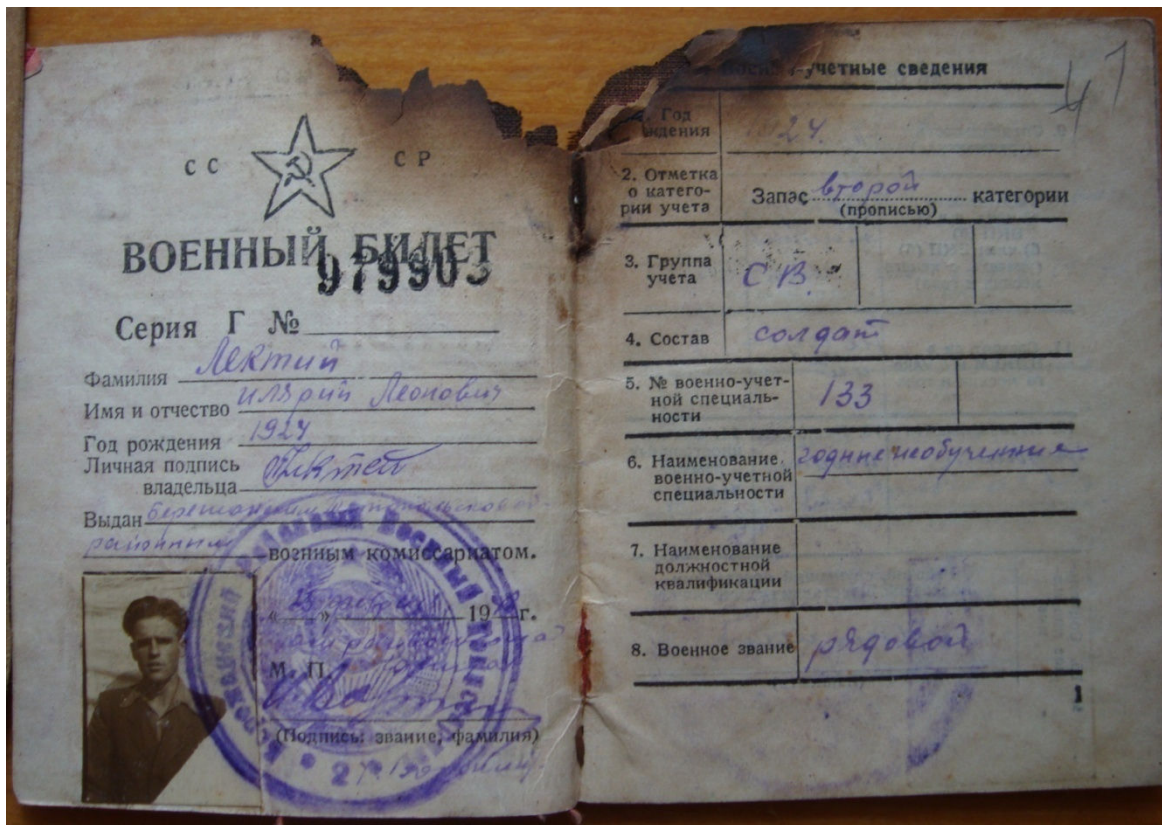 СС СР
ВОЕННЫЙ БИЛЕТ
979903
Серия Г №
Фамилия Лектий
Имя и отчество Илярий Леонович
Год рождения 1924
Личная подпись
владельца
Выдан
районным военным комиссариатом.
« » 19 г.
М. П.
(Подпись: звание, фамилия)
учетные сведения
47
Год
24.
2. Отметка
о катего-
рии учета
Запас второй категории
(прописью)
3. Группа
учета
СВ.
4. Состав солдат
5. № военно-учет-
ной специаль-
ности
133
6. Наименование
военно-учетной
специальности
годные необученные
7. Наименование
должностной
квалификации
8. Военное звание рядовой
1